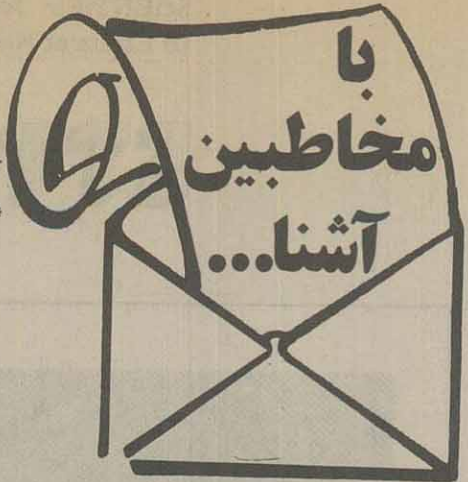 با
مخاطبین
آشنا...